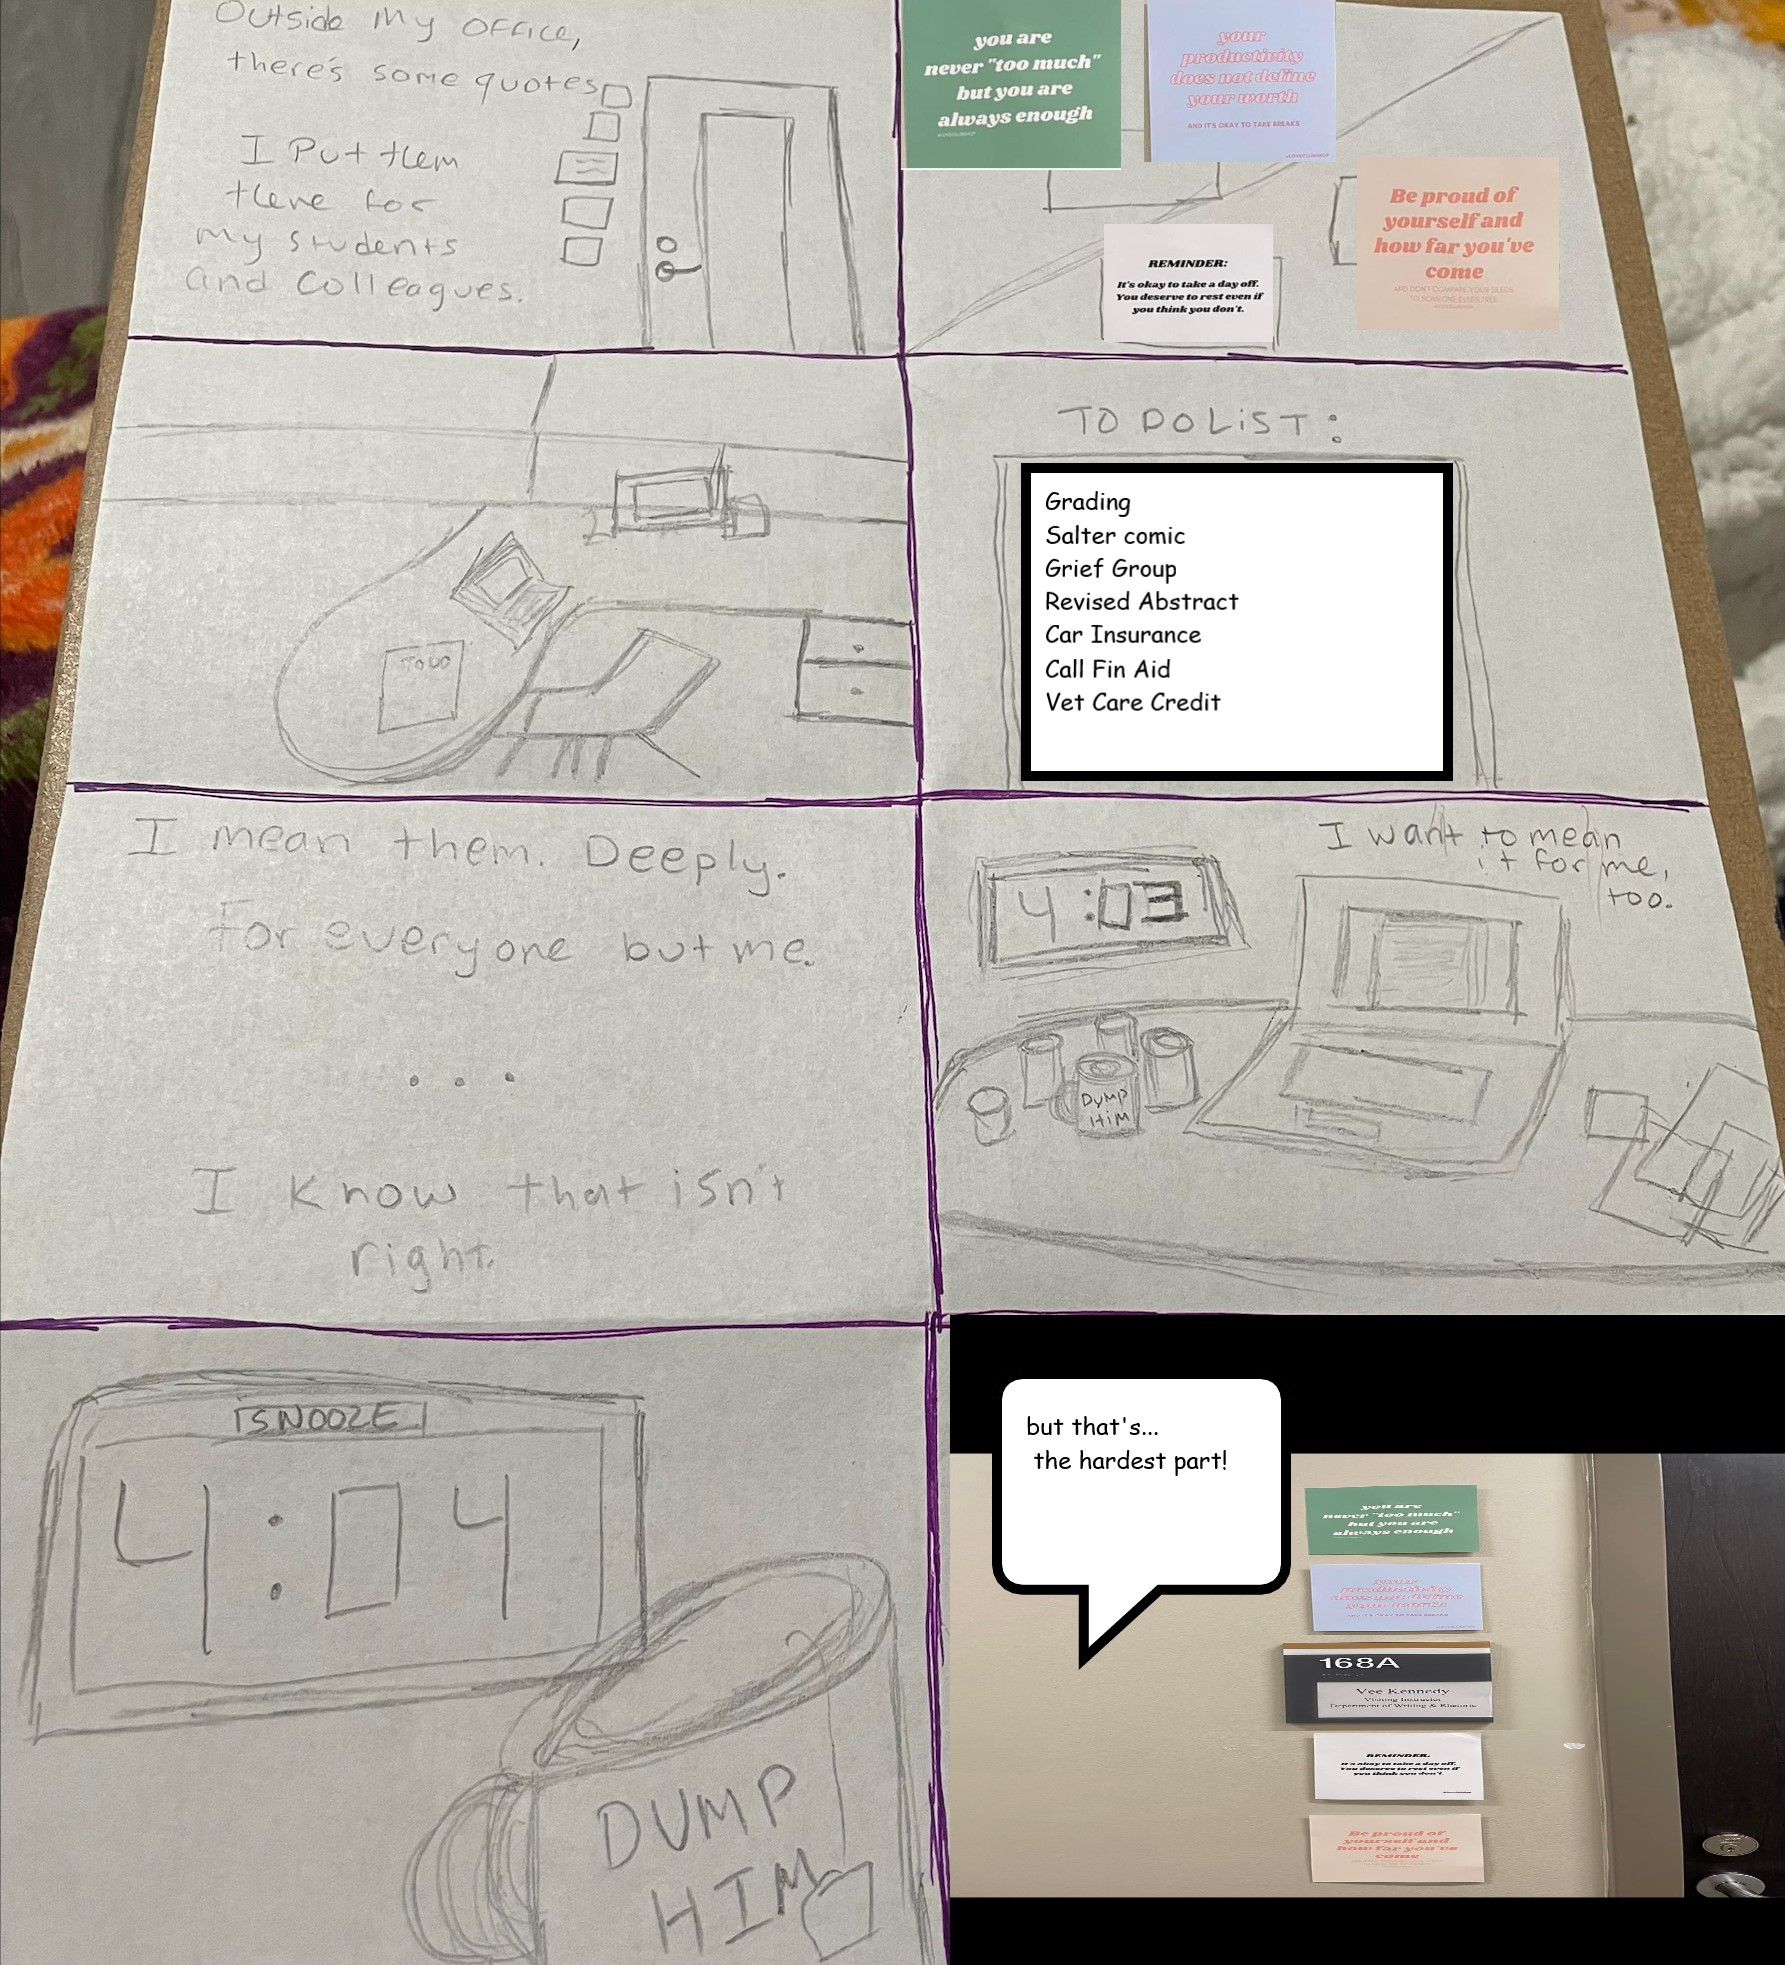 Outside My office,
there's some quotes
I Put them
there for
my students
and colleagues.
you are
never "too much"
but you are
always enough
your
productivity
does not define
your worth
AND IT'S OKAY TO TAKE BREAKS
Be proud of
yourself and
how far you've
come
AND DON'T COMPARE YOUR SEEDS
TO SOMEONE ELSES TREE
REMINDER:
It's okay to take a day off.
You deserve to rest even if
you think you don't.
TODO
TO DO LiST:
Grading
Salter comic
Grief Group
Revised Abstract
Car Insurance
Call Fin Aid
Vet Care Credit
I mean them. Deeply.
For everyone but me.
...
I know that isn't
right.
I want to mean
it for me,
too.
4:03
Dump
Him
SNOOZE
4:04
DUMP
HIM
but that's...
the hardest part!
you are
never "too much"
but you are
always enough
your
productivity
does not define
your worth
AND IT'S OKAY TO TAKE BREAKS
168A
Vee Kennedy
Visiting Instructor
Department of Writing & Rhetoric
REMINDER:
It's okay to take a day off.
You deserve to rest even if
you think you don't.
Be proud of
yourself and
how far you've
come